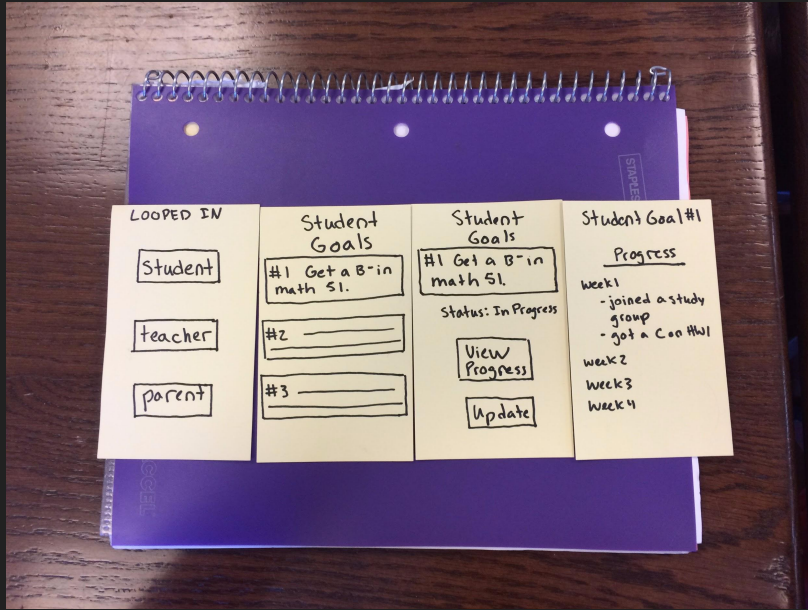 STAPLES
LOOPED IN
Student
teacher
parent
Student
Goals
#1 Get a B- in
math 51.
#2
#3
Student
Goals
#1 Get a B- in
math 51.
Status: In Progress
View
Progress
Update
Student Goal #1
Progress
Week 1
- joined a study
group
- got a C on HW1
Week 2
Week 3
Week 4